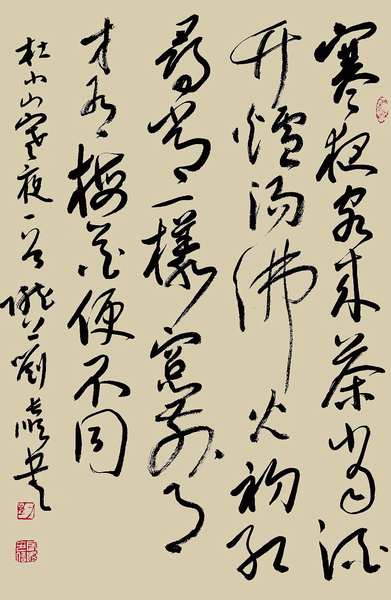 寒夜客來茶當酒
竹爐湯沸火初紅
尋常一樣窗前月
才有梅花便不同
杜小山寒夜一首隴上劉